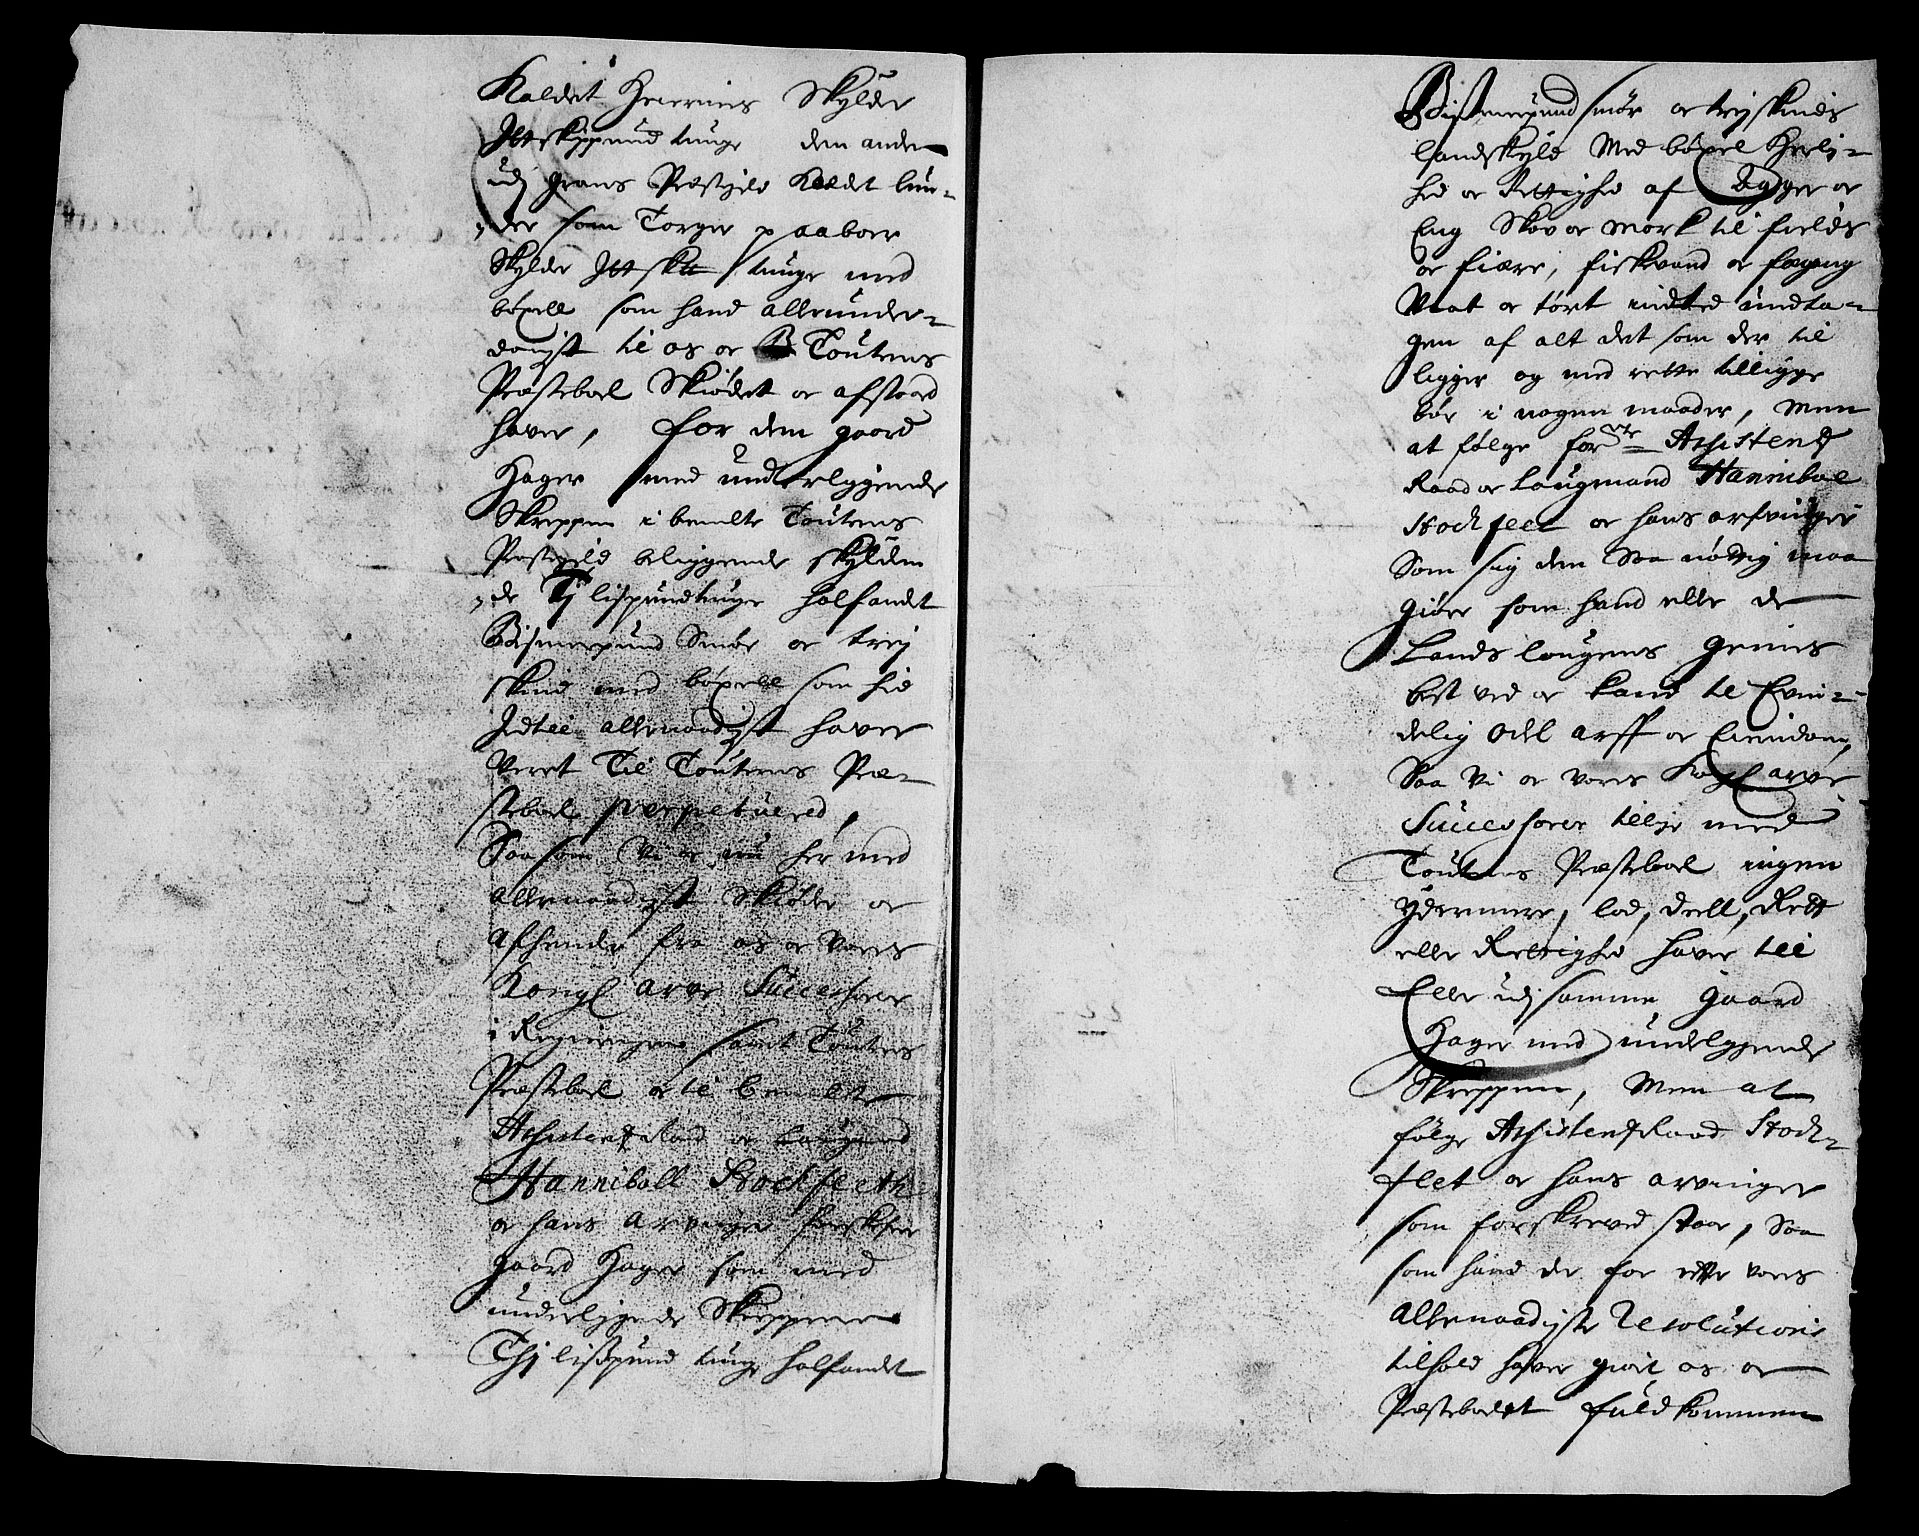 Kaldet Hvernes Skylder
Jtt skippund tunge den anden
udj Grans Præstgield Kaldet lun-
der som Torger paaboer
Skylder Jtt sk℔ tunge med
böxell som hand allerunder-
danigst til os oc Toutens
Præsteboel Skiödet oc afstaaed
haver, for dem gaard
Hager med underlyggende
Skreppen i bemelte Toutens
Prestegield beliggende skylden
de Tj lispund tunge halfandet
Bismerpund Smör oc trej
skind med böxell som hid
Jndtil allernaadigst haver
Veret Til Toutens Præ-
steboel perpetuered,
Saa som Vi oc nu her med
allernaadigst Skiöder oc
afhender fra os oc Vores
Kongl arve Successorer
i Regieringen samt Toutens
Præsteboel oc til bemelte
Assistentz Raad oc Laugmand
Hanniball Stockfleth
oc hans arvinger
gaard Hager som med
underliggende Skreppen
Thj lispund tunge halfandet
Bismerpund smör oc trej skinds
landskyld Med böxel Herlig-
hed oc Rettighed af Agger oc
Eng Skov oc mark til fields
oc fiære, fiskevand oc fægang
Vaat oc tört intted undta-
gen af alt det som der til
ligger og med rette tilligge
bör i nogen maader, Men
at fölge forne Assistentz
Raad oc Laugmand Hannibal
Stockfleet oc hans arfvinger
Som sig den saa nöttig maa
giöre som hand eller de
Lands lougens gemes
best ved oc kand til Evin-
delig Odel arff oc Eiendom,
Saa Vi oc vores Kongl arve
Successorer tillige med
Toutens Præsteboel ingen
ydermere, lod, deell, Rett
eller Rettighed haver till
Eller udj samme gaard
Hager med underlyggende
Skreppen, Men at
fölge Assistentz Raad Stock-
fleet oc hans arvinger
som forskreved staar, Saa
som hand der for effter vores
allernaadigste Resolutions
tilhold haver giort os oc
Præsteboelet fuldkommen